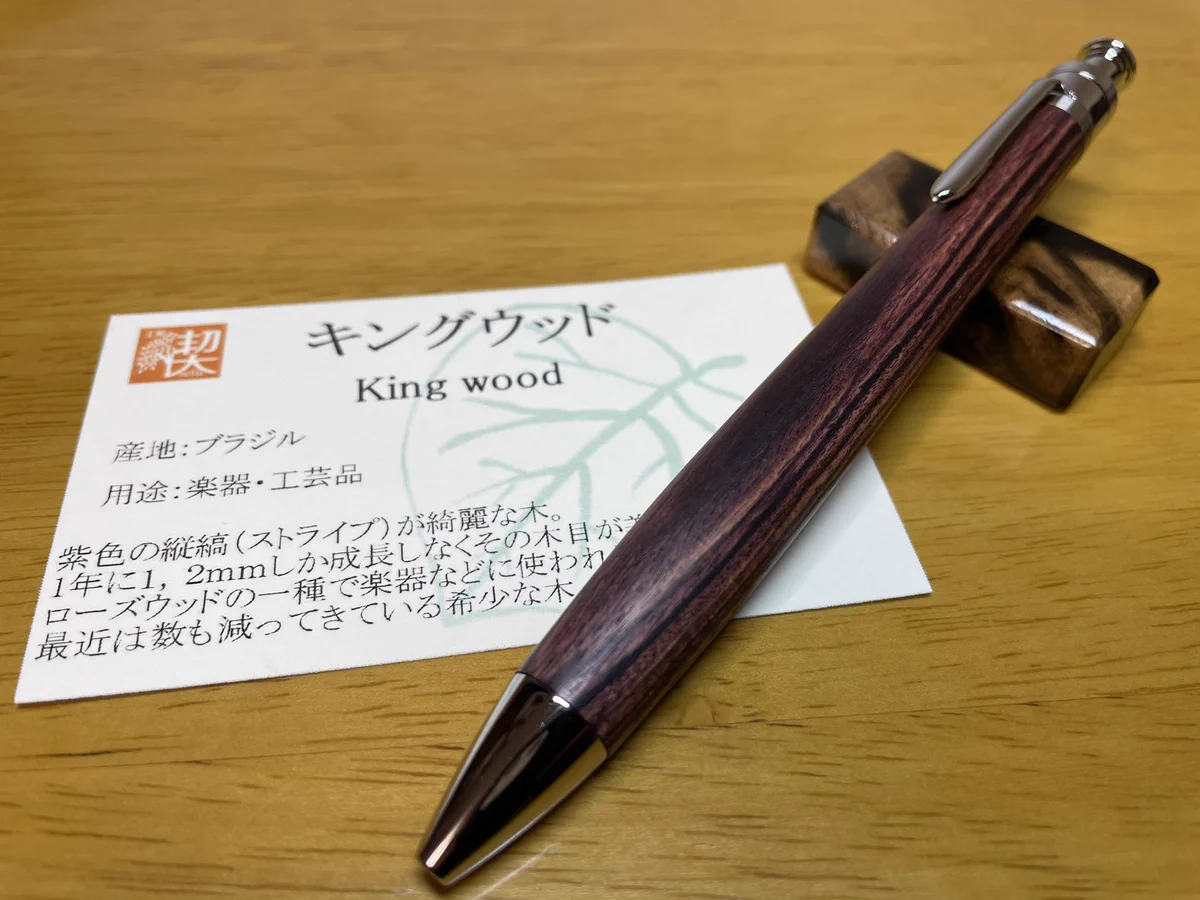 契
キングウッド
King wood
産地:ブラジル
用途:楽器・工芸品
紫色の縦縞(ストライプ)が綺麗な木。
1年に1，2mmしか成長しなくその木目が
ローズウッドの一種で楽器などに使われ
最近は数も減ってきている希少な木